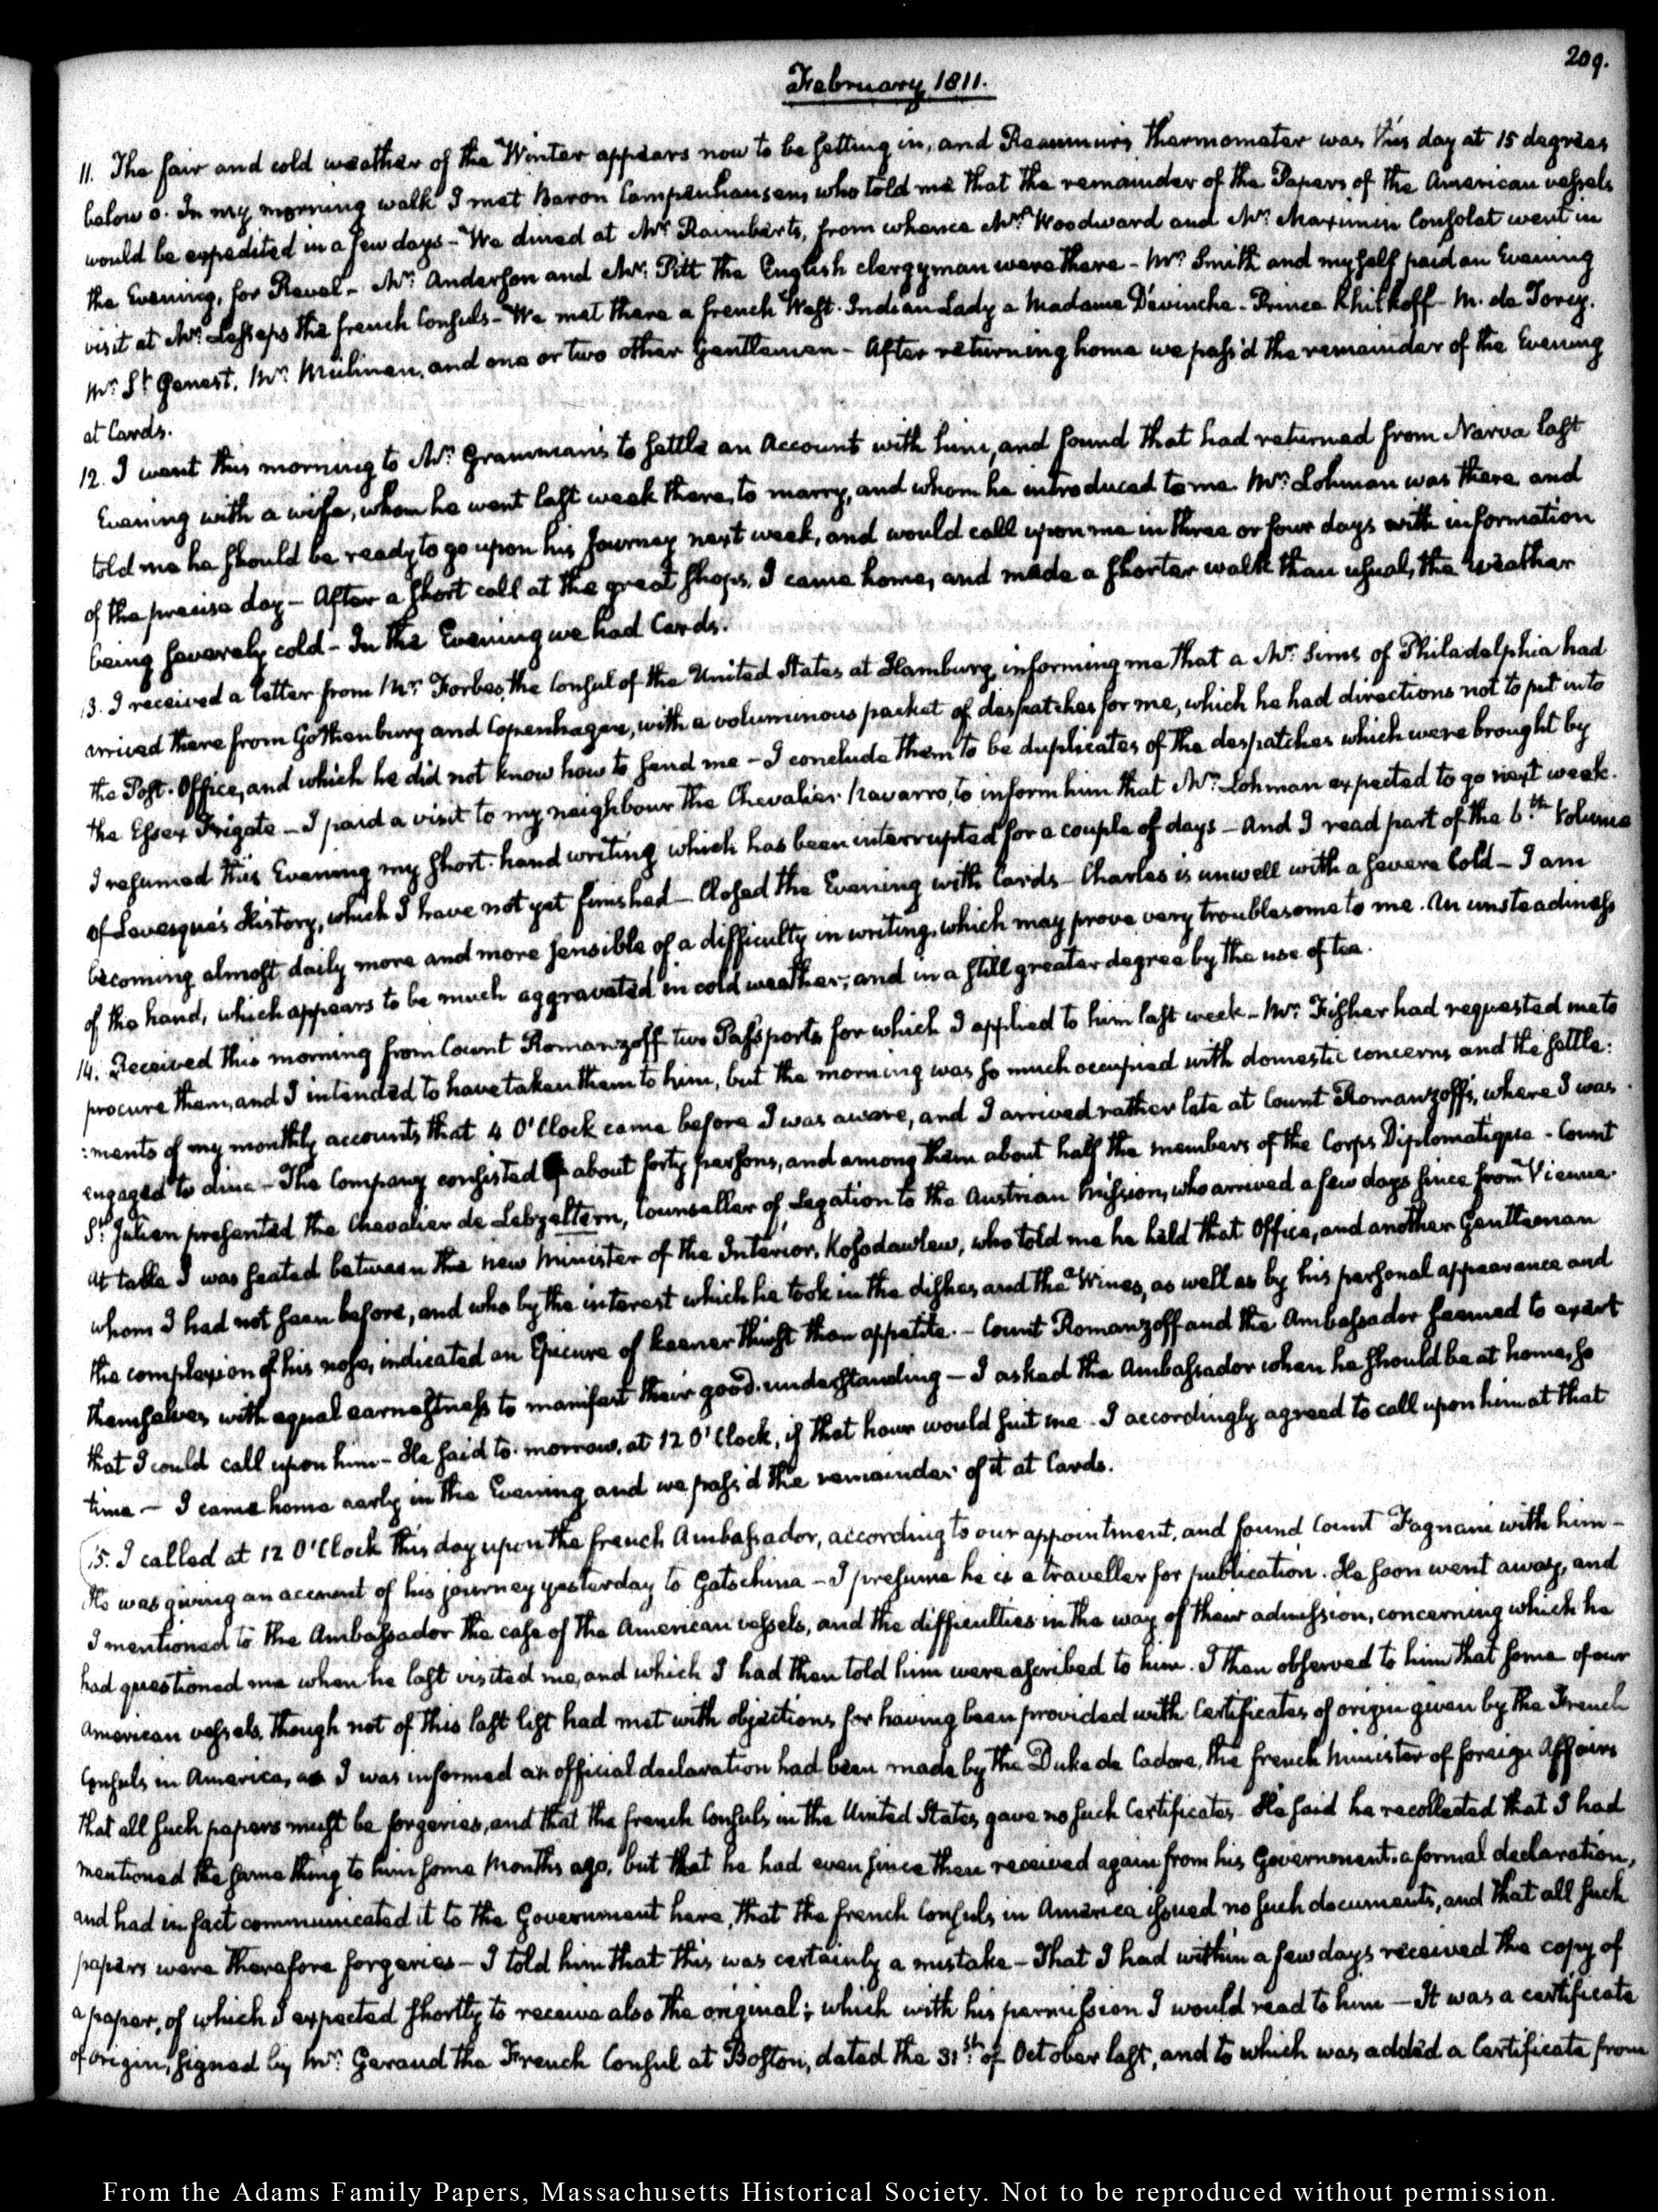 209.
February 1811.
11. The fair and cold weather of the Winter appears now to be setting in, and Reaumur's Thermometer was this day at 15 degrees
below 0. In my morning walk I met Baron Campenhausen, who told me that the remainder of the Papers of the American vessels
would be expedited in a few days - We dined at Mr. Raimbert's, from whence Mr. Woodward and Mr. Maximin Consolat went in
the Evening, for Revel - Mr. Anderson and Mr. Pitt the English clergyman were there - Mr. Smith and myself paid an Evening
visit at Mr. Lesseps the french Consul's - We met there a french West-Indian Lady a Madame Devinche - Prince Khilkoff - M. de Torcy.
Mr. St. Genest, Mr. Mulinen, and one or two other Gentlemen - After returning home we pass'd the remainder of the Evening
at Cards.
12. I went this morning to Mr. Gramman's to settle an Account with him, and found that had returned from Narva last
Evening with a wife, whom he went last week there, to marry, and whom he introduced to me. Mr. Lohman was there and
told me he should be ready to go upon his Journey next week, and would call upon me in three or four days with information
of the precise day - After a short call at the great shops, I came home, and made a shorter walk than usual, the weather
being severely cold - In the Evening we had Cards.
13. I received a letter from Mr. Forbes, the Consul of the United States at Hamburg, informing me that a Mr. Sims of Philadelphia had
arrived there from Gothenburg and Copenhagen, with a voluminous packet of despatches for me, which he had directions not to put into
the Post-Office, and which he did not know how to send me - I conclude them to be duplicates of the despatches which were brought by
the Essex Frigate - I paid a visit to my neighbour the Chevalier Navarro, to inform him that Mr. Lohman expected to go next week.
I resumed this Evening my short-hand writing which has been interrupted for a couple of days - And I read part of the 6th. Volume
of Levesque's History, which I have not yet finished - Closed the Evening with Cards - Charles is unwell with a severe Cold - I am
becoming almost daily more and more sensible of a difficulty in writing, which may prove very troublesome to me. An unsteadiness
of the hand, which appears to be much aggravated in cold weather; and in a still greater degree by the use of tea.
14. Received this morning from Count Romanzoff two Passports for which I applied to him last week - Mr. Fisher had requested me to
procure them, and I intended to have taken them to him, but the morning was so much occupied with domestic concerns and the settle:
:ments of my monthly accounts that 4 O'Clock came before I was aware, and I arrived rather late at Count Romanzoff's, where I was
engaged to dine - The Company consisted of about forty persons, and among them about half the members of the Corps Diplomatique - Count
St. Julien presented the Chevalier de Lebzeltern, Counsellor of Legation to the Austrian Mission, who arrived a few days since from Vienna.
At table I was seated between the new Minister of the Interior, Kosodawlew, who told me he held that Office, and another Gentleman
whom I had not seen before, and who by the interest which he took in the dishes and the Wines, as well as by his personal appearance and
the complexion of his nose, indicated an Epicure of keener thirst than appetite. - Count Romanzoff and the Ambassador seemed to exert
themselves with equal earnestness to manifest their good understanding - I asked the Ambassador when he should be at home, so
that I could call upon him - He said to-morrow, at 12 O'Clock, if that hour would suit me - I accordingly agreed to call upon him at that
time - I came home early in the Evening and we pass'd the remainder of it at Cards.
15. I called at 12 O'Clock this day upon the french Ambassador, according to our appointment, and found Count Fagnani with him -
He was giving an account of his journey yesterday to Gatschina - I presume he is a traveller for publication. He soon went away, and
I mentioned to the Ambassador the case of the American vessels, and the difficulties in the way of their admission, concerning which he
had questioned me when he last visited me, and which I had then told him were ascribed to him. I then observed to him that some of our
American vessels, though not of this last list had met with objections for having been provided with Certificates of origin given by the French
Consuls in America, as I was informed an official declaration had been made by the Duke de Cadore, the french Minister of foreign Affairs
that all such papers must be forgeries, and that the french Consuls in the United States gave no such Certificates - He said he recollected that I had
mentioned the same thing to him some Months ago, but that he had even since then received again from his Government a formal declaration,
and had in fact communicated it to the Government here, that the french Consuls in America issued no such documents, and that all such
papers were therefore forgeries - I told him that this was certainly a mistake - That I had within a few days received the copy of
a paper, of which I expected shortly to receive also the original; which with his permission I would read to him - It was a certificate
of origin, signed by Mr. Geraud the French Consul at Boston, dated the 31st. of October last, and to which was added a Certificate from
From the Adams Family Papers, Massachusetts Historical Society. Not to be reproduced without permission.